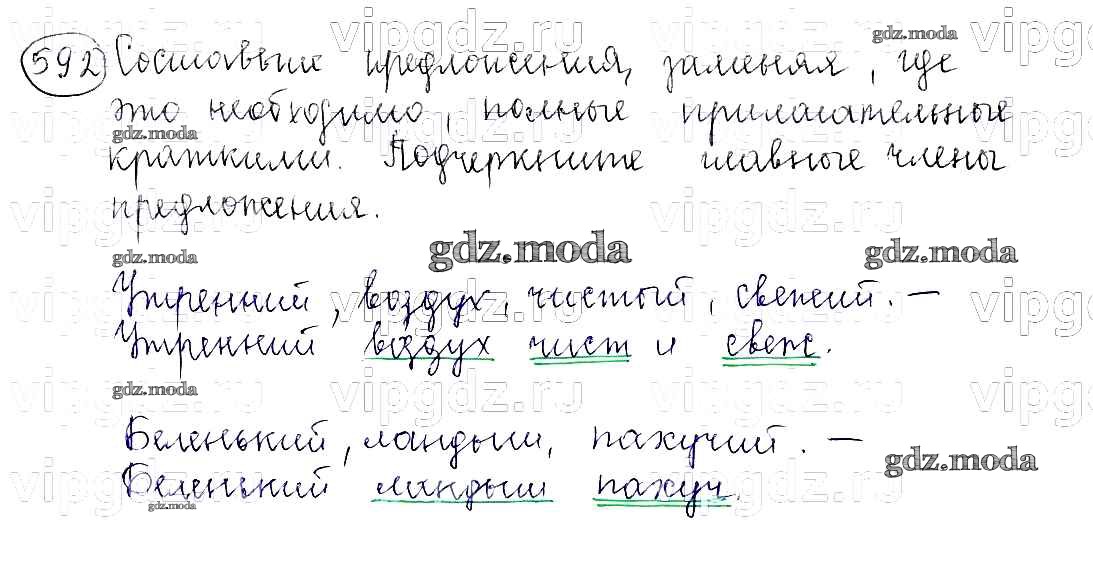 592 Составьте предложения, заменяя, где
это необходимо, полные прилагательные
краткими. Подчеркните главные члены
предложения.
Утренний, воздух, чистый, свежий. —
Утренний воздух чист и свеж.
Беленький, ландыш, пахучий. —
Беленький ландыш пахуч.
vipgdz.ru
gdz.moda